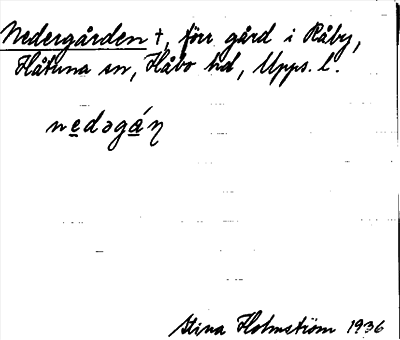 Nedergården †, förr gård i Råby,
Håtuna sn, Håbo hd, Upps. l.
nedəgáɳ
Stina Holmström 1936